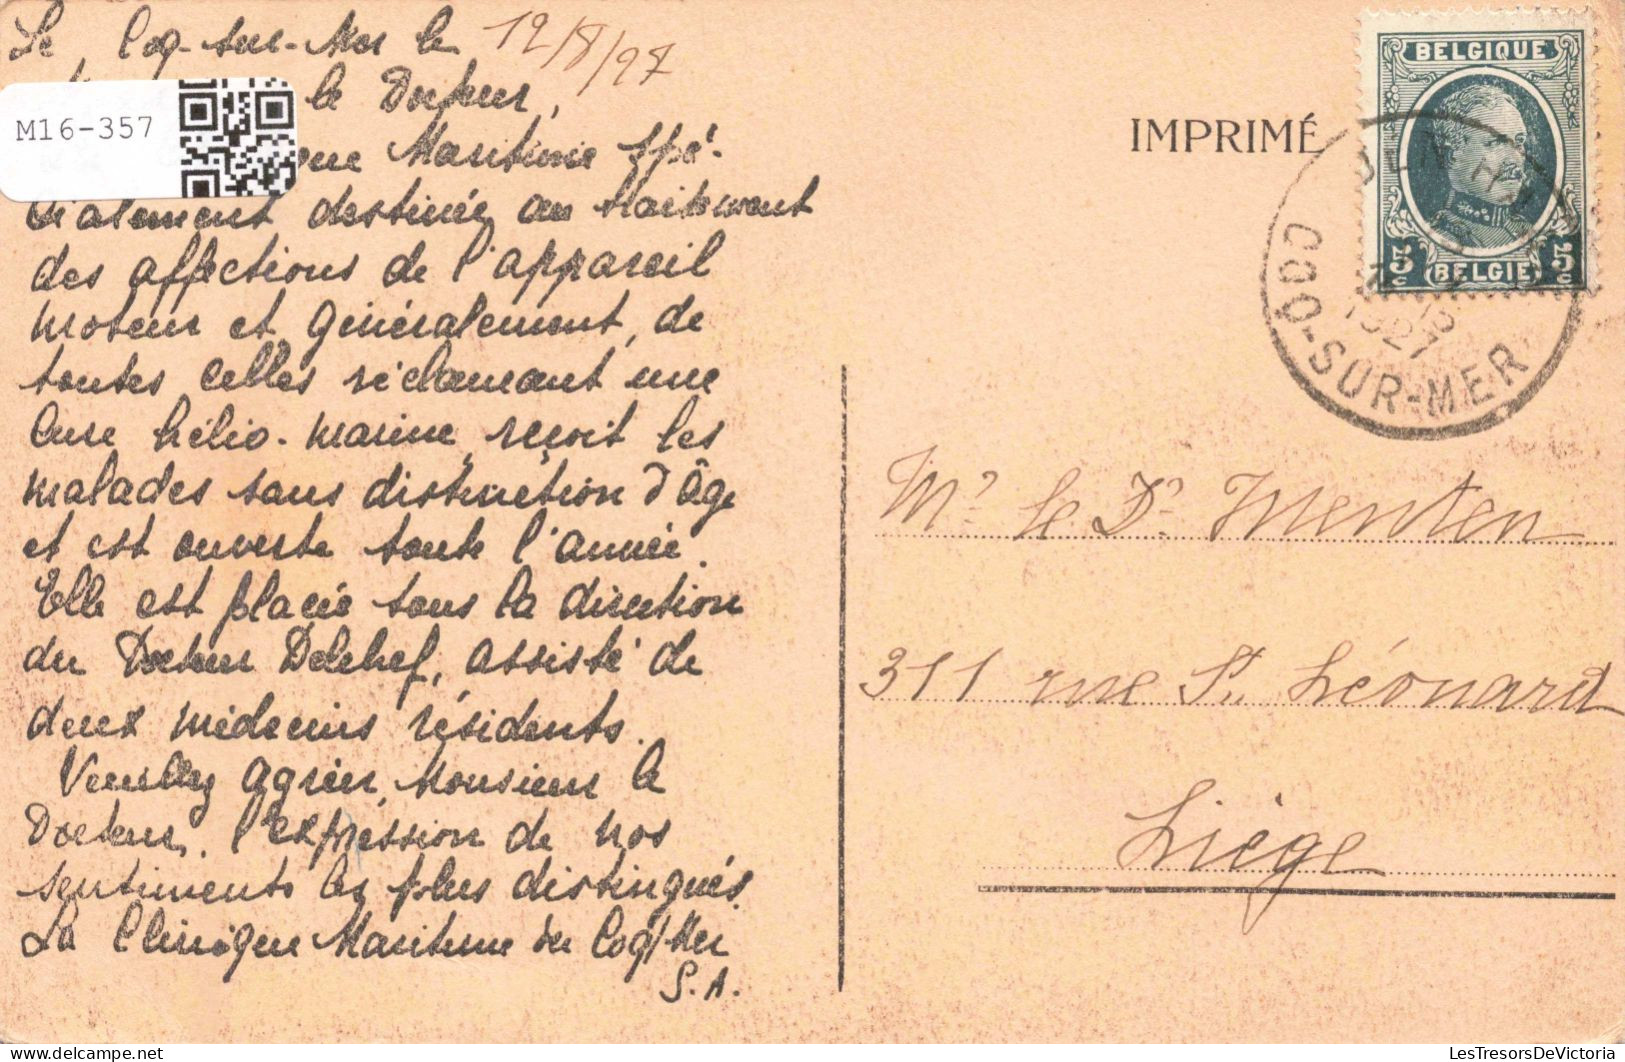 Le Coq-sur-Mer le 12/8/27
le Docteur,
M16-357
que Maritime spé-
cialement destinée au traitement
des affections de l'appareil
moteur et généralement, de
toutes celles réclamant une
Cure hélio-marine, reçoit les
malades sans distinction d'âge
et est ouverte toute l'année.
Elle est placée sous la direction
du Docteur Delchef, assisté de
deux médecins résidents.
Veuillez agréer, Monsieur le
Docteur, l'expression de nos
sentiments les plus distingués.
La Clinique Maritime du Coq s/Mer
S.A.
IMPRIMÉ
BELGIQUE
5 c 5 c
BELGIË
1927
COQ-SUR-MER
Mr le Dr Menten
311 rue St. Léonard
Liège
LesTresorsDeVictoria